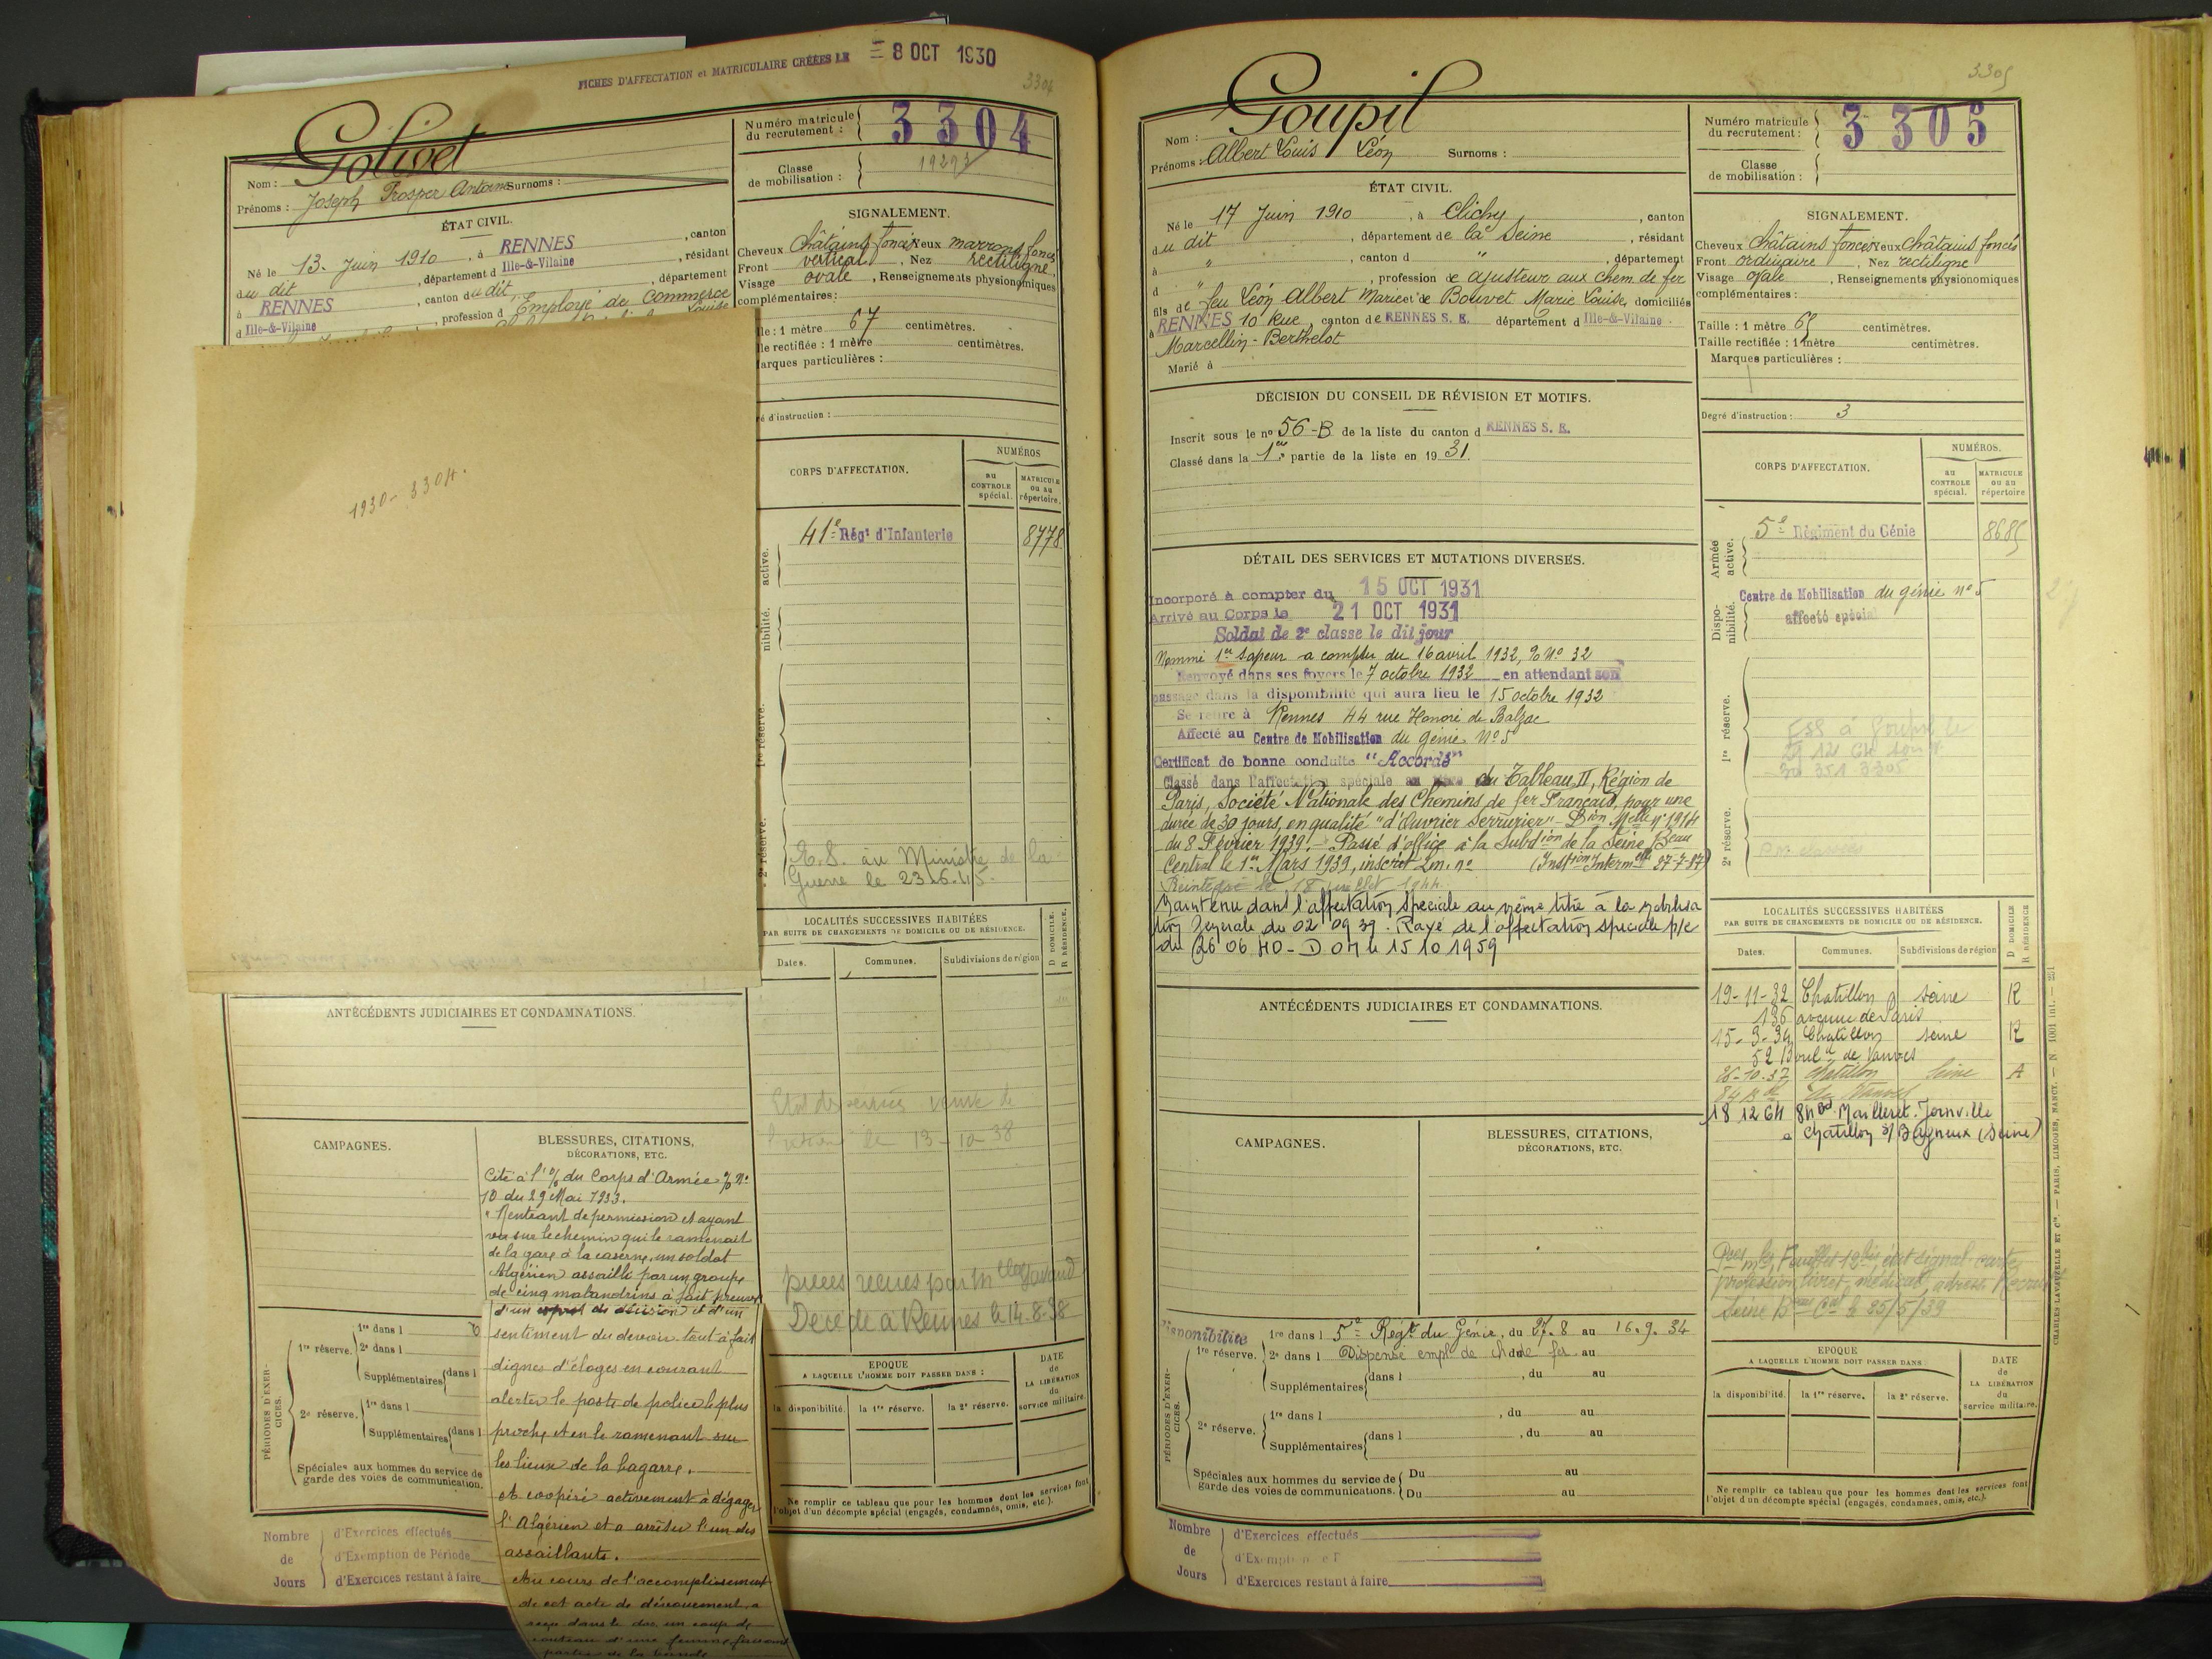 FICHES D'AFFECTATION et MATRICULAIRE CRÉÉES LE = 8 OCT 1930
3304
Golivet
Nom :
Prénoms : Joseph Prosper Antoine Surnoms :
Numéro matricule du recrutement : 3304
Classe de mobilisation :
ÉTAT CIVIL.
Né le 13 Juin 1910, à RENNES, canton
du dit, département d Ille-&-Vilaine, résidant
à RENNES, canton du dit, département
d Ille-&-Vilaine, profession d Employé de Commerce
SIGNALEMENT.
Cheveux Châtains foncés Yeux marrons foncés
Front vertical, Nez rectiligne
Visage ovale, Renseignements physionomiques
complémentaires :
lle : 1 mètre 67 centimètres.
lle rectifiée : 1 mètre centimètres.
arques particulières :
ré d'instruction :
1930 - 3304.
CORPS D'AFFECTATION.
NUMÉROS
au CONTROLE spécial.
MATRICULE ou au répertoire.
active.
41e Régt d'Infanterie 8778
nibilité.
1re réserve.
2e réserve.
E.S. au Ministre de la
Guerre le 23.6.45.
LOCALITÉS SUCCESSIVES HABITÉES
PAR SUITE DE CHANGEMENTS DE DOMICILE OU DE RÉSIDENCE.
D DOMICILE.
R RÉSIDENCE.
Dates. Communes. Subdivisions de région
13-10-38
pièces reçues par
Décédé à Rennes le 14-8-38
ANTÉCÉDENTS JUDICIAIRES ET CONDAMNATIONS.
CAMPAGNES.
BLESSURES, CITATIONS,
DÉCORATIONS, ETC.
Cité à l'o/ du Corps d'Armée o/ No
10 du 29 Mai 1933.
"Rentrant de permission et ayant
vu sur le chemin qui le ramenait
de la gare à la caserne, un soldat
Algérien assailli par un groupe
de cinq malandrins a fait preuve
d'un esprit de décision et d'un
sentiment du devoir tout à fait
dignes d'éloges en courant
alerter le poste de police le plus
proche et en le ramenant sur
les lieux de la bagarre.
et coopéré activement à dégager
l'Algérien et a arrêté l'un des
assaillants.
Au cours de l'accomplissement
de cet acte de dévouement, a
reçu dans le dos un coup de
couteau d'une femme faisant
partie de la bande
PÉRIODES D'EXERCICES.
1re réserve.
1re dans l
2e dans l
Supplémentaires dans l
2e réserve.
1re dans l
Supplémentaires dans l
Spéciales aux hommes du service de
garde des voies de communication.
EPOQUE
A LAQUELLE L'HOMME DOIT PASSER DANS :
la disponibilité. la 1re réserve. la 2e réserve.
DATE de LA LIBÉRATION du service militaire.
Ne remplir ce tableau que pour les hommes dont les services font
l'objet d'un décompte spécial (engagés, condamnés, omis, etc.).
Nombre de Jours
d'Exercices effectués
d'Exemption de Période
d'Exercices restant à faire
3305
Goupil
Nom :
Prénoms : Albert Louis Léon Surnoms :
Numéro matricule du recrutement : 3305
Classe de mobilisation :
ÉTAT CIVIL.
Né le 17 Juin 1910, à Clichy, canton
du dit, département de la Seine, résidant
à ", canton d ", département
d ", profession de ajusteur aux chem. de fer
fils de feu Léon Albert Marie et de Bouvet Marie Louise, domiciliés
à RENNES 10 Rue, canton de RENNES S. E. département d Ille-&-Vilaine.
Marcellin-Berthelot
Marié à
SIGNALEMENT.
Cheveux Châtains foncés Yeux Châtains foncés
Front ordinaire, Nez rectiligne
Visage ovale, Renseignements physionomiques
complémentaires :
Taille : 1 mètre 65 centimètres.
Taille rectifiée : 1 mètre centimètres.
Marques particulières :
Degré d'instruction : 3
DÉCISION DU CONSEIL DE RÉVISION ET MOTIFS.
Inscrit sous le no 56-B de la liste du canton d RENNES S. E.
Classé dans la 1re partie de la liste en 1931.
DÉTAIL DES SERVICES ET MUTATIONS DIVERSES.
Incorporé à compter du 15 OCT 1931
Arrivé au Corps le 21 OCT 1931
Soldat de 2e classe le dit jour
Nommé 1er Sapeur a compter du 16 avril 1932, o/o No 32
Renvoyé dans ses foyers le 7 octobre 1932 en attendant son
passage dans la disponibilité qui aura lieu le 15 octobre 1932
Se retire à Rennes 44 rue Honoré de Balzac
Affecté au Centre de Mobilisation du génie No 5
Certificat de bonne conduite "Accordé"
Classé dans l'affectation spéciale au du Tableau II, Région de
Paris, Société Nationale des Chemins de fer Français, pour une
durée de 30 jours, en qualité "d'Ouvrier Serrurier" - Dion Melle no 1914
du 8 Février 1939. - Passé d'office à la Subdion de la Seine Beau
Central le 1er Mars 1939, inscrit Lm. no (Instion Intermelle 27-7-37)
Réintégré le 18 juillet 1944.
Maintenu dans l'affectation spéciale au même titre à la mobilisa
tion générale du 02 09 39. Rayé de l'affectation spéciale p/c
du 26 06 40 - D O M le 15 10 1959
CORPS D'AFFECTATION.
NUMÉROS.
au CONTROLE spécial.
MATRICULE ou au répertoire
Armée active.
5e Régiment du Génie 8685
Disponibilité.
Centre de Mobilisation du génie no 5
affecté spécial
1re réserve.
ESS à Goupil le
2e réserve.
LOCALITÉS SUCCESSIVES HABITÉES
PAR SUITE DE CHANGEMENTS DE DOMICILE OU DE RÉSIDENCE.
D DOMICILE
R RÉSIDENCE
Dates. Communes. Subdivisions de région
19-11-32 Chatillon Seine R
136 avenue de Paris
15-3-34 Chatillon Seine R
52 Bould de Vanves
26-10-37 Chatillon Seine A
84 Bd de Vanves
18 12 64 84 Bd Mailleret-Joinville
a Chatillon s/ Bagneux (Seine)
ANTÉCÉDENTS JUDICIAIRES ET CONDAMNATIONS.
CAMPAGNES.
BLESSURES, CITATIONS,
DÉCORATIONS, ETC.
profession, livret médical, adressé Recrut
Seine Beau Cal le 25/5/39
PÉRIODES D'EXERCICES.
Disponibilité 1re dans l 5e Régt du Génie, du 27.8 au 16.9.34
1re réserve. 2e dans l Dispensé empl. de ch. de fer au
Supplémentaires dans l , du au
2e réserve. 1re dans l , du au
Supplémentaires dans l , du au
Spéciales aux hommes du service de garde des voies de communications.
Du au
Du au
EPOQUE
A LAQUELLE L'HOMME DOIT PASSER DANS :
la disponibilité. la 1re réserve. la 2e réserve.
DATE de LA LIBÉRATION du service militaire.
Ne remplir ce tableau que pour les hommes dont les services font
l'objet d'un décompte spécial (engagés, condamnés, omis, etc.).
Nombre de Jours
d'Exercices effectués
d'Exercices restant à faire
CHARLES-LAVAUZELLE ET Cie. — PARIS, LIMOGES, NANCY. — N. 1001 int. —